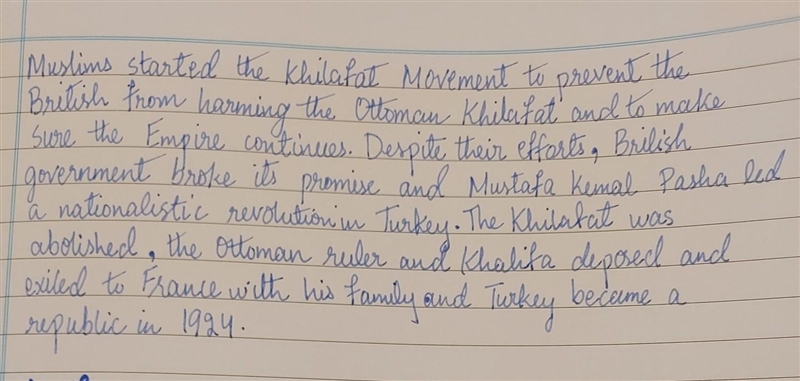 Muslims started the Khilafat Movement to prevent the
British from harming the Ottoman Khilafat and to make
sure the Empire continues. Despite their efforts, British
government broke its promise and Mustafa Kemal Pasha led
a nationalistic revolution in Turkey. The Khilafat was
abolished, the Ottoman ruler and Khalifa deposed and
exiled to France with his family and Turkey became a
republic in 1924.